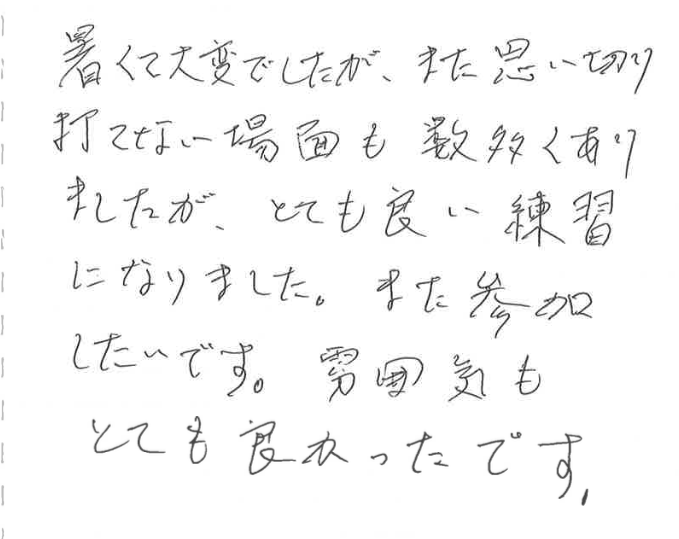 暑くて大変でしたが、また思い切り
打てない場面も数多くあり
ましたが、とても良い練習
になりました。また参加
したいです。雰囲気も
とても良かったです,